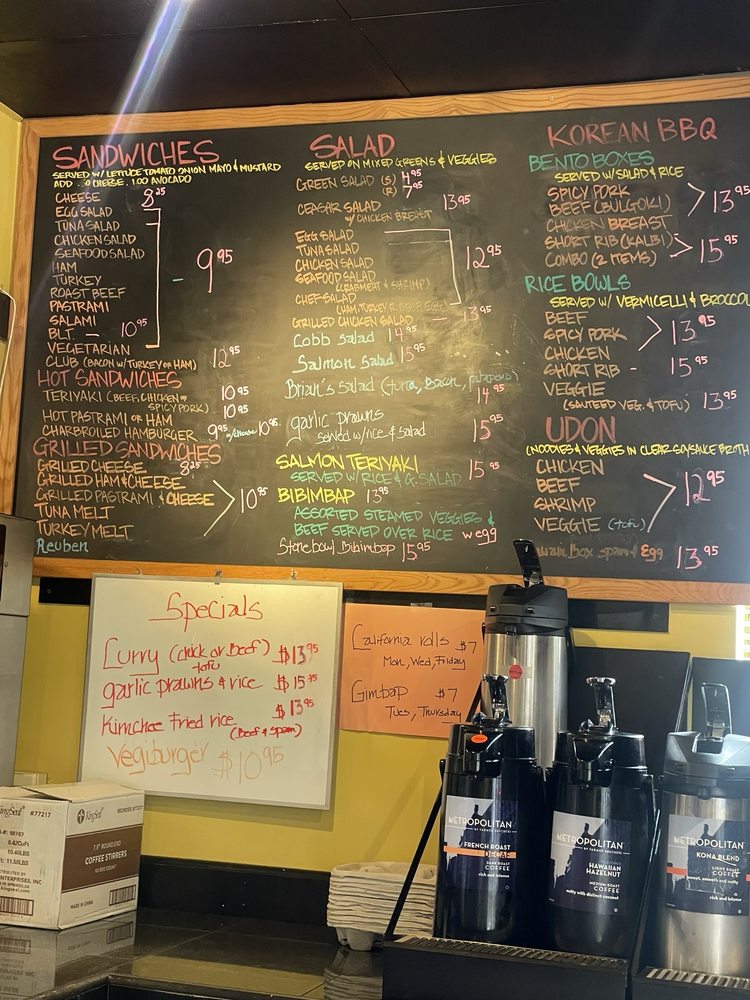 SANDWICHES
SERVED W/ LETTUCE TOMATO ONION MAYO & MUSTARD
ADD CHEESE, 1.00 AVOCADO
CHEESE 8.25
EGG SALAD
TUNA SALAD
CHICKEN SALAD
SEAFOOD SALAD
HAM
TURKEY
- 9.95
ROAST BEEF
PASTRAMI
SALAMI
BLT. 10.95
VEGETARIAN
CLUB (BACON W/ TURKEY OR HAM) 12.95
HOT SANDWICHES
TERIYAKI (BEEF, CHICKEN OR SPICY PORK) 10.95
HOT PASTRAMI OR HAM 10.95
CHARBROILED HAMBURGER 9.95 w/cheese 10.95
GRILLED SANDWICHES
GRILLED CHEESE 8.25
GRILLED HAM & CHEESE
GRILLED PASTRAMI & CHEESE > 10.95
TUNA MELT
TURKEY MELT
Reuben
SALAD
SERVED ON MIXED GREENS & VEGGIES
GREEN SALAD (S) 4.95
(R) 7.95
CEASAR SALAD 13.95
W/ CHICKEN BREAST
EGG SALAD
TUNA SALAD
12.95
CHICKEN SALAD
SEAFOOD SALAD
(CRABMEAT & SHRIMP)
CHEF SALAD
(HAM, TURKEY, EGG)
GRILLED CHICKEN SALAD 13.95
Cobb Salad 14.95
Salmon Salad 15.95
Brian's Salad (tuna, Bacon, Jalapeno)
14.95
garlic prawns
served w/ rice & salad 15.95
SALMON TERIYAKI 15.95
SERVED W/ RICE & G. SALAD
BIBIMBAP 13.95
ASSORTED STEAMED VEGGIES &
BEEF SERVED OVER RICE w egg
Stonebowl Bibimbap 15.95
KOREAN BBQ
BENTO BOXES
SERVED W/ SALAD & RICE
SPICY PORK
BEEF (BULGOKI) > 13.95
CHICKEN BREAST
SHORT RIB (KALBI) > 15.95
COMBO (2 ITEMS)
RICE BOWLS
SERVED W/ VERMICELLI & BROCCOLI
BEEF
SPICY PORK > 13.95
CHICKEN
SHORT RIB - 15.95
VEGGIE
(SAUTEED VEG. & TOFU) 13.95
UDON
(NOODLES & VEGGIES IN CLEAR SOYSAUCE BROTH
CHICKEN
BEEF
SHRIMP > 12.95
VEGGIE (tofu)
Box spam & Egg 13.95
Specials
Curry (chick or Beef) $13.95
tofu
garlic prawns & rice $15.95
Kimchee Fried rice $13.95
(Beef & Spam)
Vegiburger $10.95
California rolls $7
Mon, Wed, Friday
Gimbap $7
Tues, Thursday
#77217
KingSeal
REORDER #77217
7.5" ROUND END
COFFEE STIRRERS
MADE IN CHINA
METROPOLITAN
BY FARMER BROTHERS
FRENCH ROAST
DECAF
DARK ROAST
COFFEE
rich and intense
METROPOLITAN
BY FARMER BROTHERS
HAWAIIAN
HAZELNUT
MEDIUM ROAST
COFFEE
nutty with distinct coconut
METROPOLITAN
KONA BLEND
LIGHT ROAST
COFFEE
sweet, smooth and nutty
rich and intense